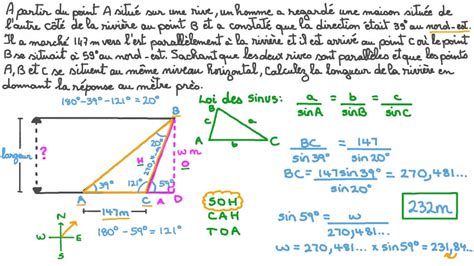 A partir du point A situé sur une rive, un homme a regardé une maison située de
l'autre côté de la rivière au point B et a constaté que la direction était 39° au nord-est.
Il a marché 147m vers l'est parallèlement à la rivière et il est arrivé au point C où le point
B se situait à 59° au nord-est. Sachant que les deux rives sont parallèles et que les points
A, B et C se situent au même niveau horizontal, Calculez la longueur de la rivière en
donnant la réponse au mètre près.
180°-39°-121°=20°
Loi des sinus: a/sinA = b/sinB = c/sinC
B
c a
A b C
B
20°
270,48...
H
w m
O
largeur ?
39°
121°
59°
A C A D
147m
180°-59°=121°
N
W E
S
SOH
CAH
TOA
BC/sin39° = 147/sin20°
BC = 147sin39°/sin20° = 270,481...
sin59° = w/270,481...
w = 270,481... x sin59° = 231,84...
232m